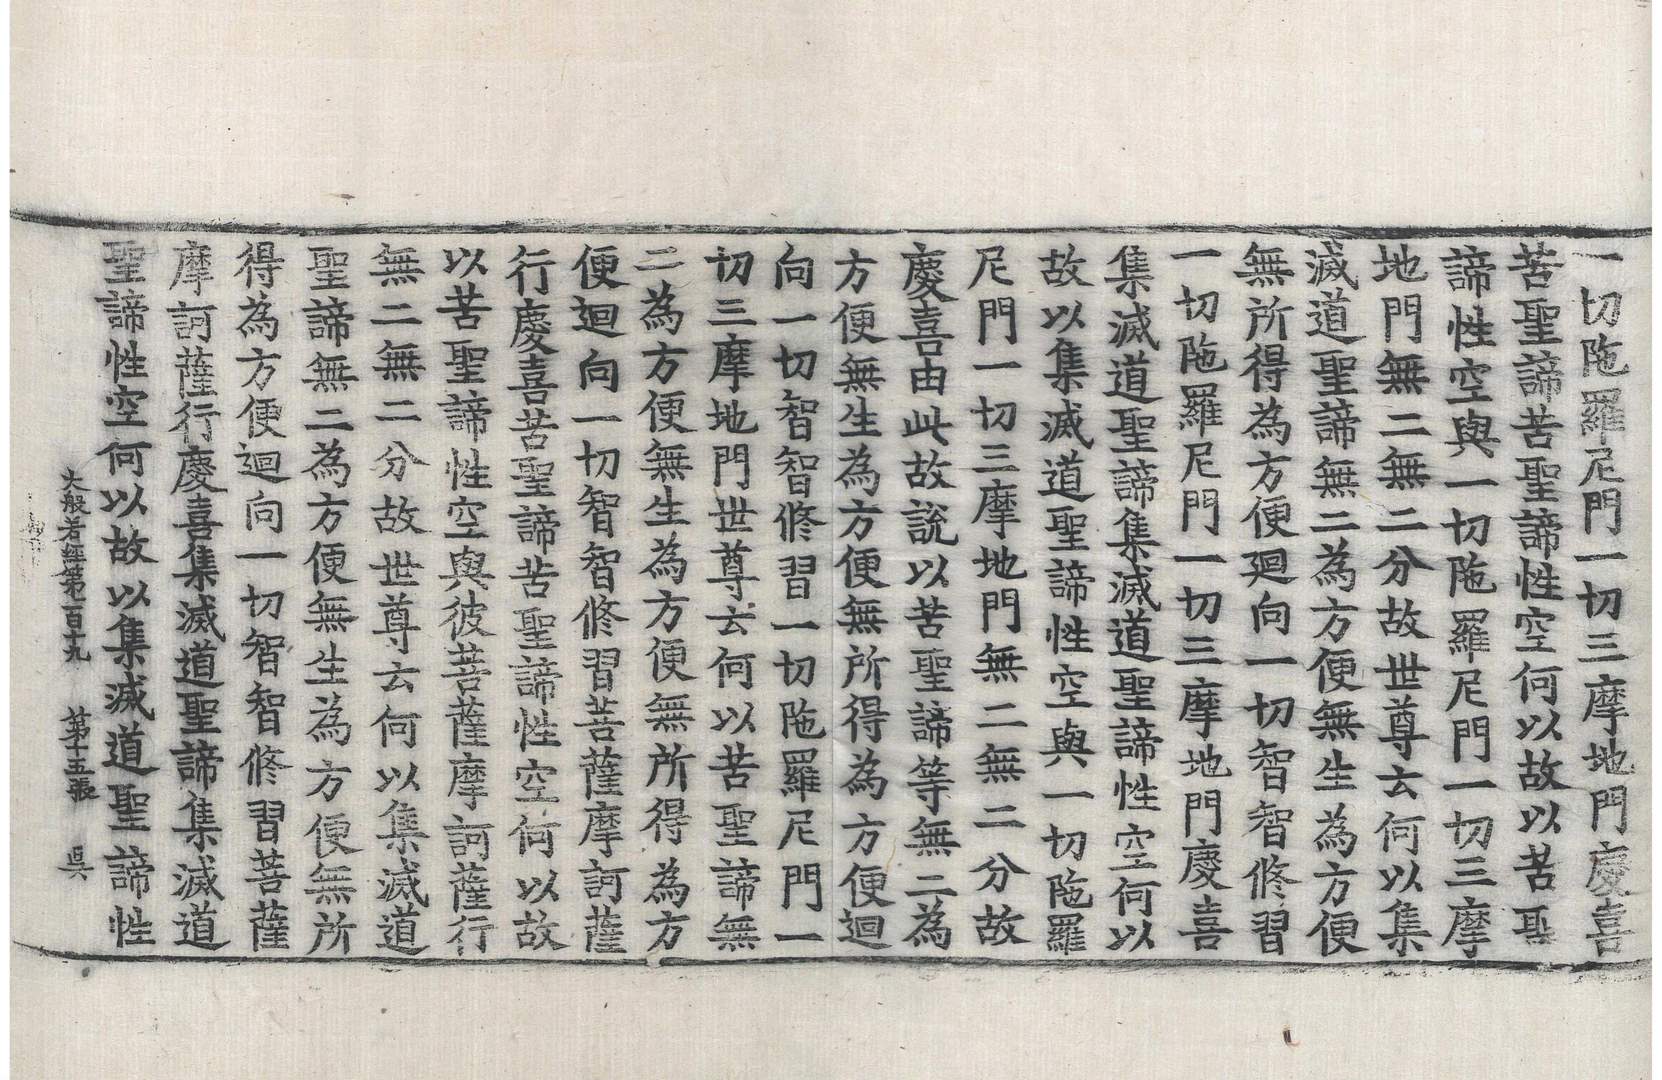 一切陁羅尼門一切三摩地門慶喜
苦聖諦苦聖諦性空何以故以苦聖
諦性空與一切陁羅尼門一切三摩
地門無二無二分故世尊云何以集
滅道聖諦無二為方便無生為方便
無所得為方便廻向一切智智修習
一切陁羅尼門一切三摩地門慶喜
集滅道聖諦集滅道聖諦性空何以
故以集滅道聖諦性空與一切陁羅
尼門一切三摩地門無二無二分故
慶喜由此故說以苦聖諦等無二為
方便無生為方便無所得為方便迴
向一切智智修習一切陁羅尼門一
切三摩地門世尊云何以苦聖諦無
二為方便無生為方便無所得為方
便迴向一切智智修習菩薩摩訶薩
行慶喜苦聖諦苦聖諦性空何以故
以苦聖諦性空與彼菩薩摩訶薩行
無二無二分故世尊云何以集滅道
聖諦無二為方便無生為方便無所
得為方便迴向一切智智修習菩薩
摩訶薩行慶喜集滅道聖諦集滅道
聖諦性空何以故以集滅道聖諦性
大般若經第一百十九 第十五張 吳